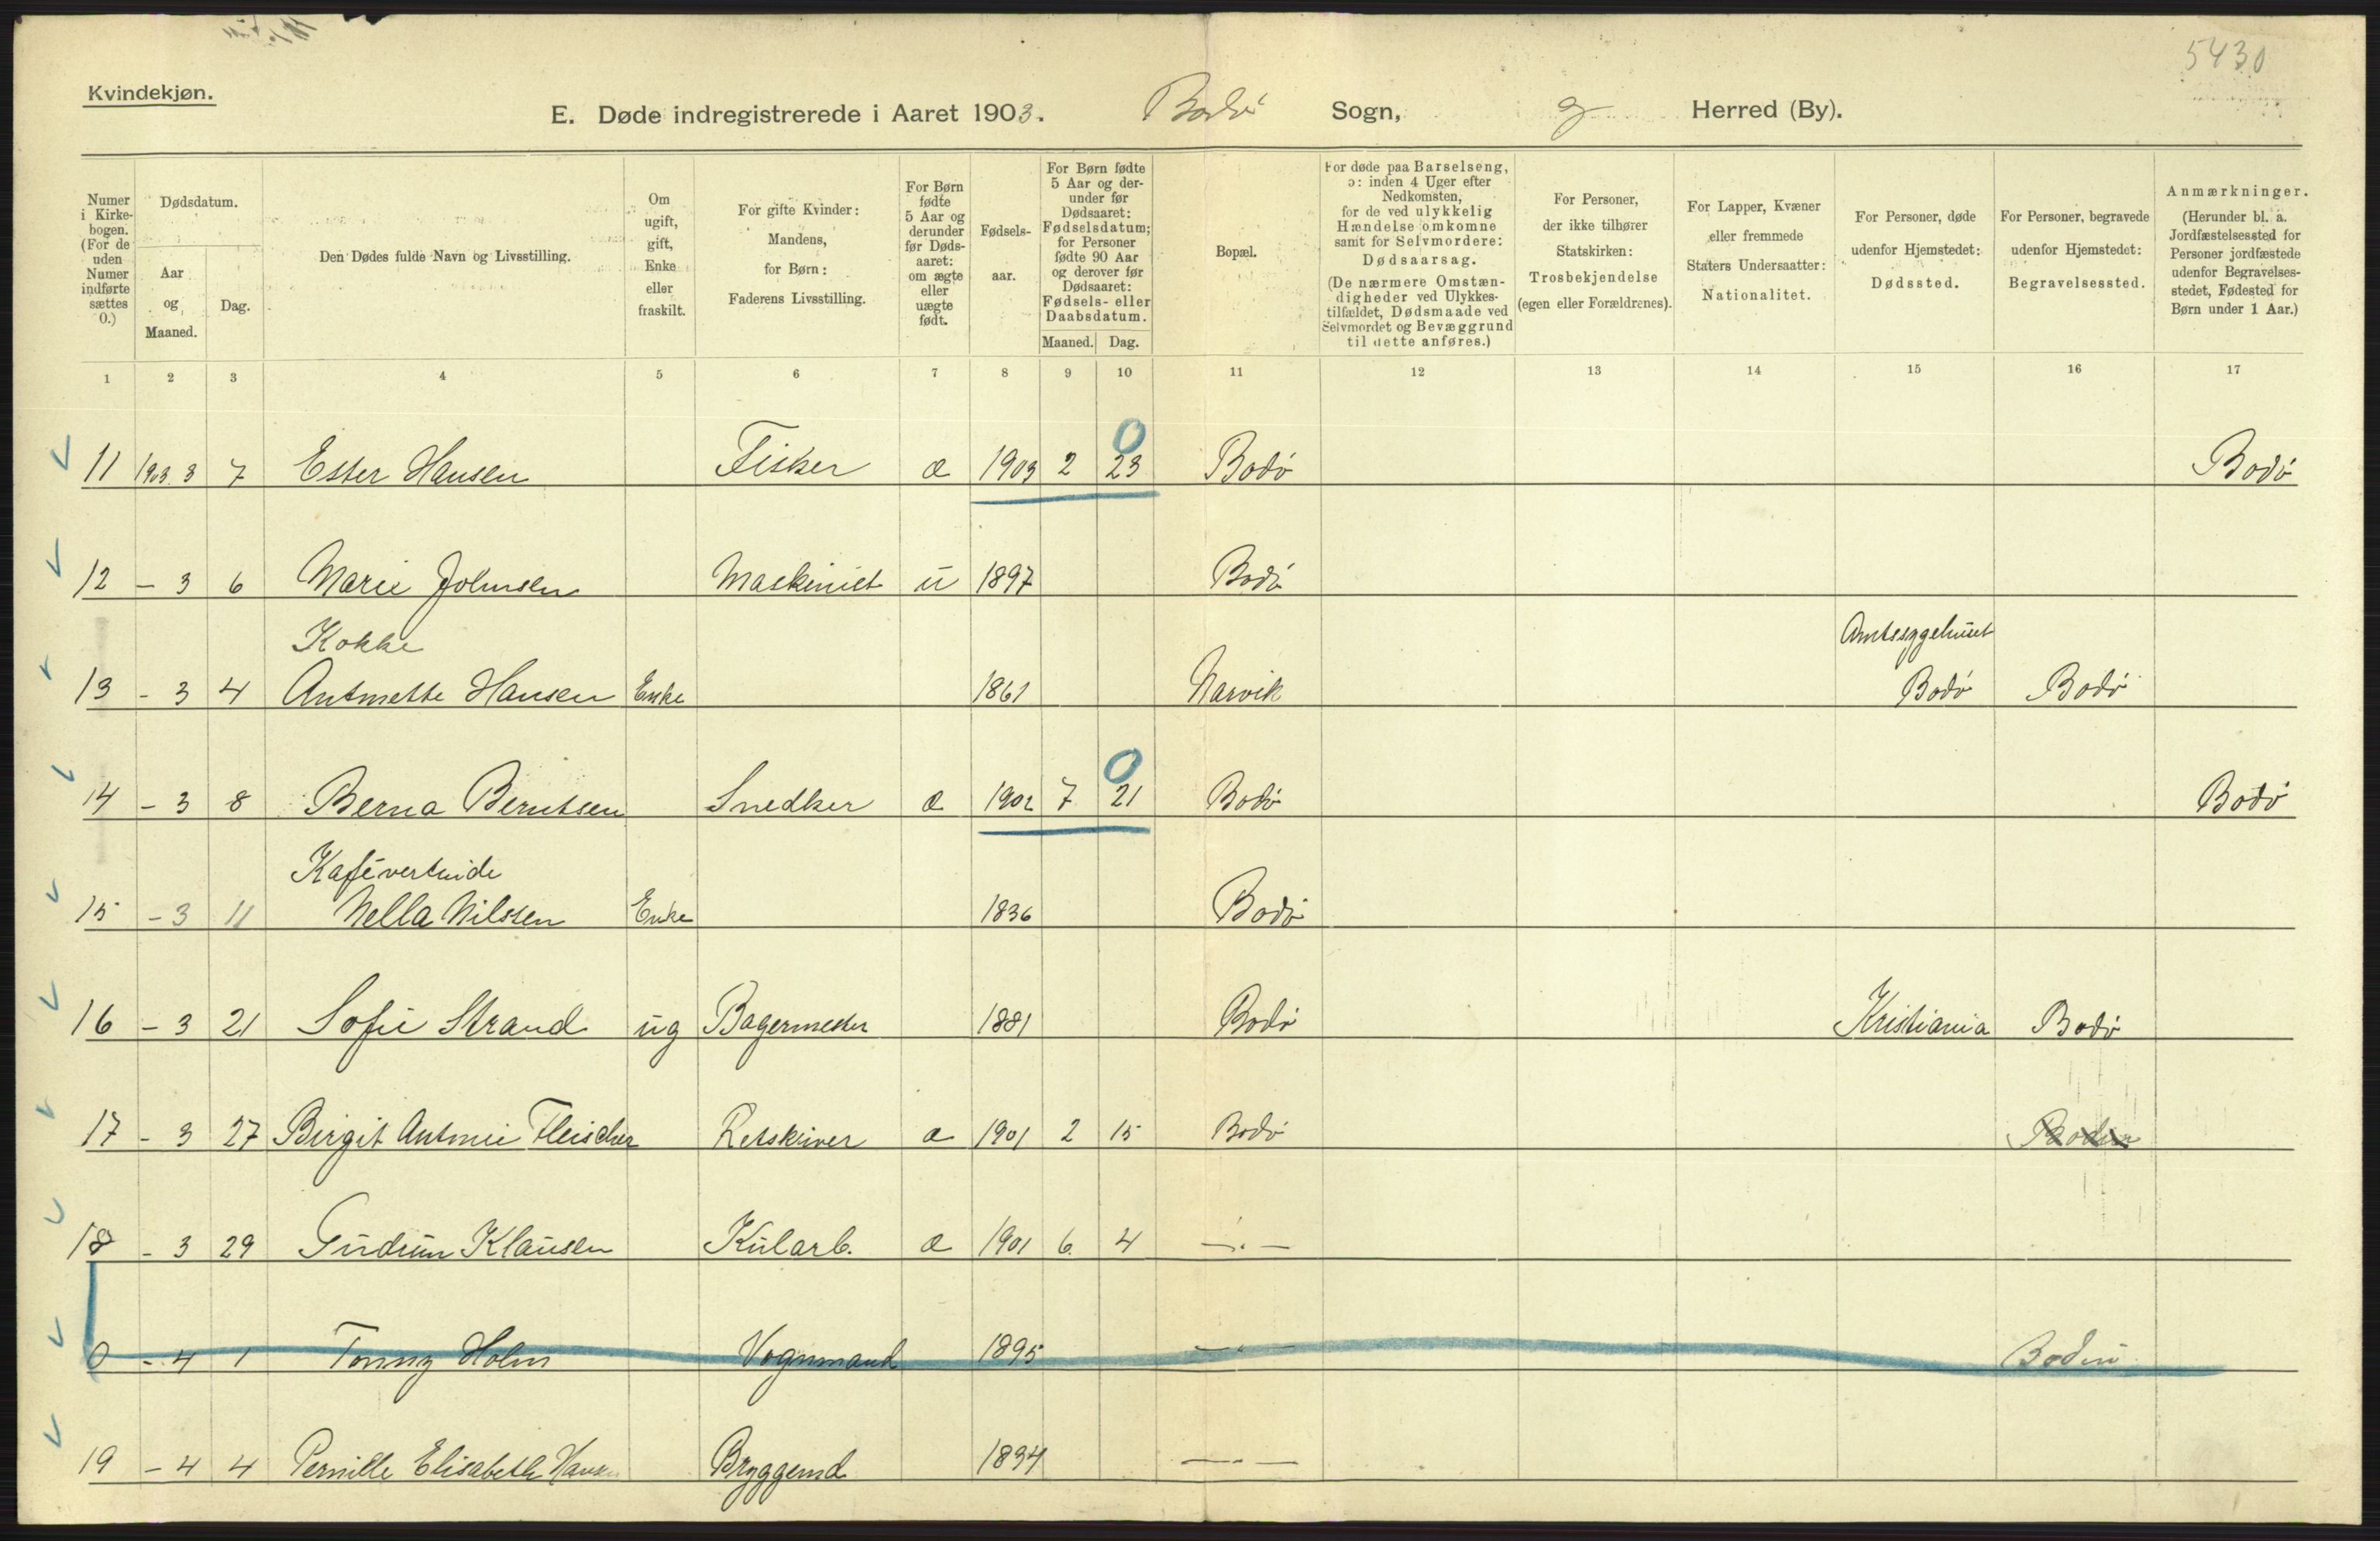 5430
Kvindekjøn.
E. Døde indregistrerede i Aaret 1903. Bodø Sogn, Herred (By).
Numer i Kirkebogen. (For de uden Numer indførte sættes 0.)
Dødsdatum.
Aar og Maaned.
Dag.
Den Dødes fulde Navn og Livsstilling.
Om ugift, gift, Enke eller fraskilt.
For gifte Kvinder: Mandens, for Børn: Faderens Livsstilling.
For Børn fødte 5 Aar og derunder før Dødsaaret: om ægte eller uægte født.
Fødselsaar.
For Børn fødte 5 Aar og derunder før Dødsaaret: Fødselsdatum; for Personer fødte 90 Aar og derover før Dødsaaret: Fødsels- eller Daabsdatum.
Maaned. Dag.
Bopæl.
For døde paa Barselseng, ɔ: inden 4 Uger efter Nedkomsten, for de ved ulykkelig Hændelse omkomne samt for Selvmordere: Dødsaarsag. (De nærmere Omstændigheder ved Ulykkestilfældet, Dødsmaade ved Selvmordet og Bevæggrund til dette anføres.)
For Personer, der ikke tilhører Statskirken: Trosbekjendelse (egen eller Forældrenes).
For Lapper, Kvæner eller fremmede Staters Undersaatter: Nationalitet.
For Personer, døde udenfor Hjemstedet: Dødssted.
For Personer, begravede udenfor Hjemstedet: Begravelsessted.
Anmærkninger. (Herunder bl. a. Jordfæstelsessted for Personer jordfæstede udenfor Begravelsesstedet, Fødested for Børn under 1 Aar.)
1 2 3 4 5 6 7 8 9 10 11 12 13 14 15 16 17
0
11 1903. 3 7 Ester Hansen Fisker æ 1903 2 23 Bodø Bodø
12 – 3 6 Marie Johnsen Maskinist u 1897 Bodø
Kokke Amtssygehuset
13 – 3 4 Antonette Hansen Enke 1861 Narvik Bodø Bodø
0
14 – 3 8 Berna Berntsen Snedker æ 1902 7 21 Bodø Bodø
Kafévertinde
15 – 3 11 Nella Nilssen Enke 1836 Bodø
16 – 3 21 Sofie Strand ug Bagermester 1881 Bodø Kristiania Bodø
17 – 3 27 Birgit Antonie Fleischer Retskriver æ 1901 2 15 Bodø Bodin
18 – 3 29 Gudrun Klausen Kularb. æ 1901 6 4 —"—
0 – 4 1 Tonny Holm Vognmand 1895 —"— Bodin
19 – 4 4 Pernille Elisabeth Hansen Bryggemd 1894 —"—